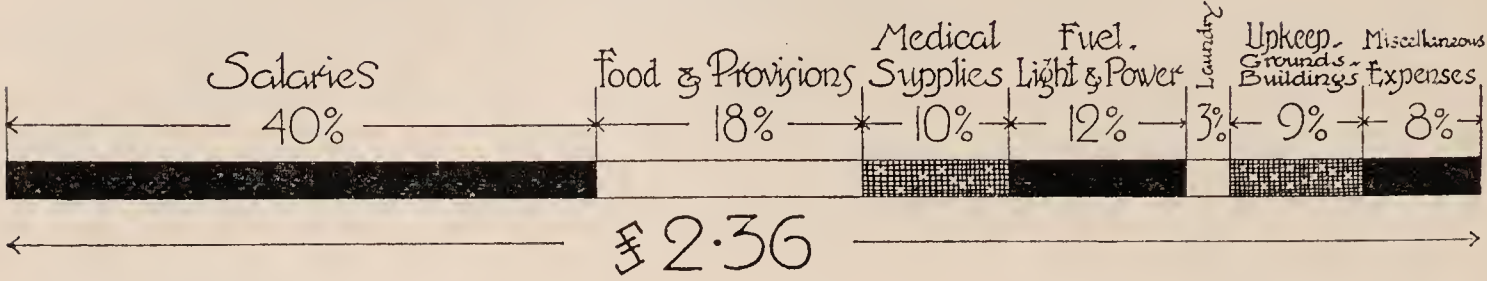 Salaries
40%
Food & Provisions
18%
Medical
Supplies
10%
Fuel.
Light & Power
12%
Laundry
3%
Upkeep-
Grounds-
Buildings
9%
Miscellaneous
Expenses
8%
$2.36